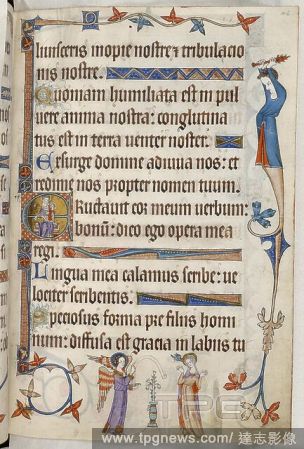 liuisceris inopie nostre ⁊ tribulacio
nis nostre.
Quoniam humiliata est in pul
uere anima nostra: conglutina
tus est in terra uenter noster.
Exsurge domine adiuua nos: et
redime nos propter nomen tuum.
Eructauit cor meum uerbum
bonum: dico ego opera mea
regi.
Lingua mea calamus scribe: ue
lociter scribentis.
Speciosus forma pre filiis homi
num: diffusa est gracia in labiis tu
TPG
www.tpgnews.com/ 達志影像